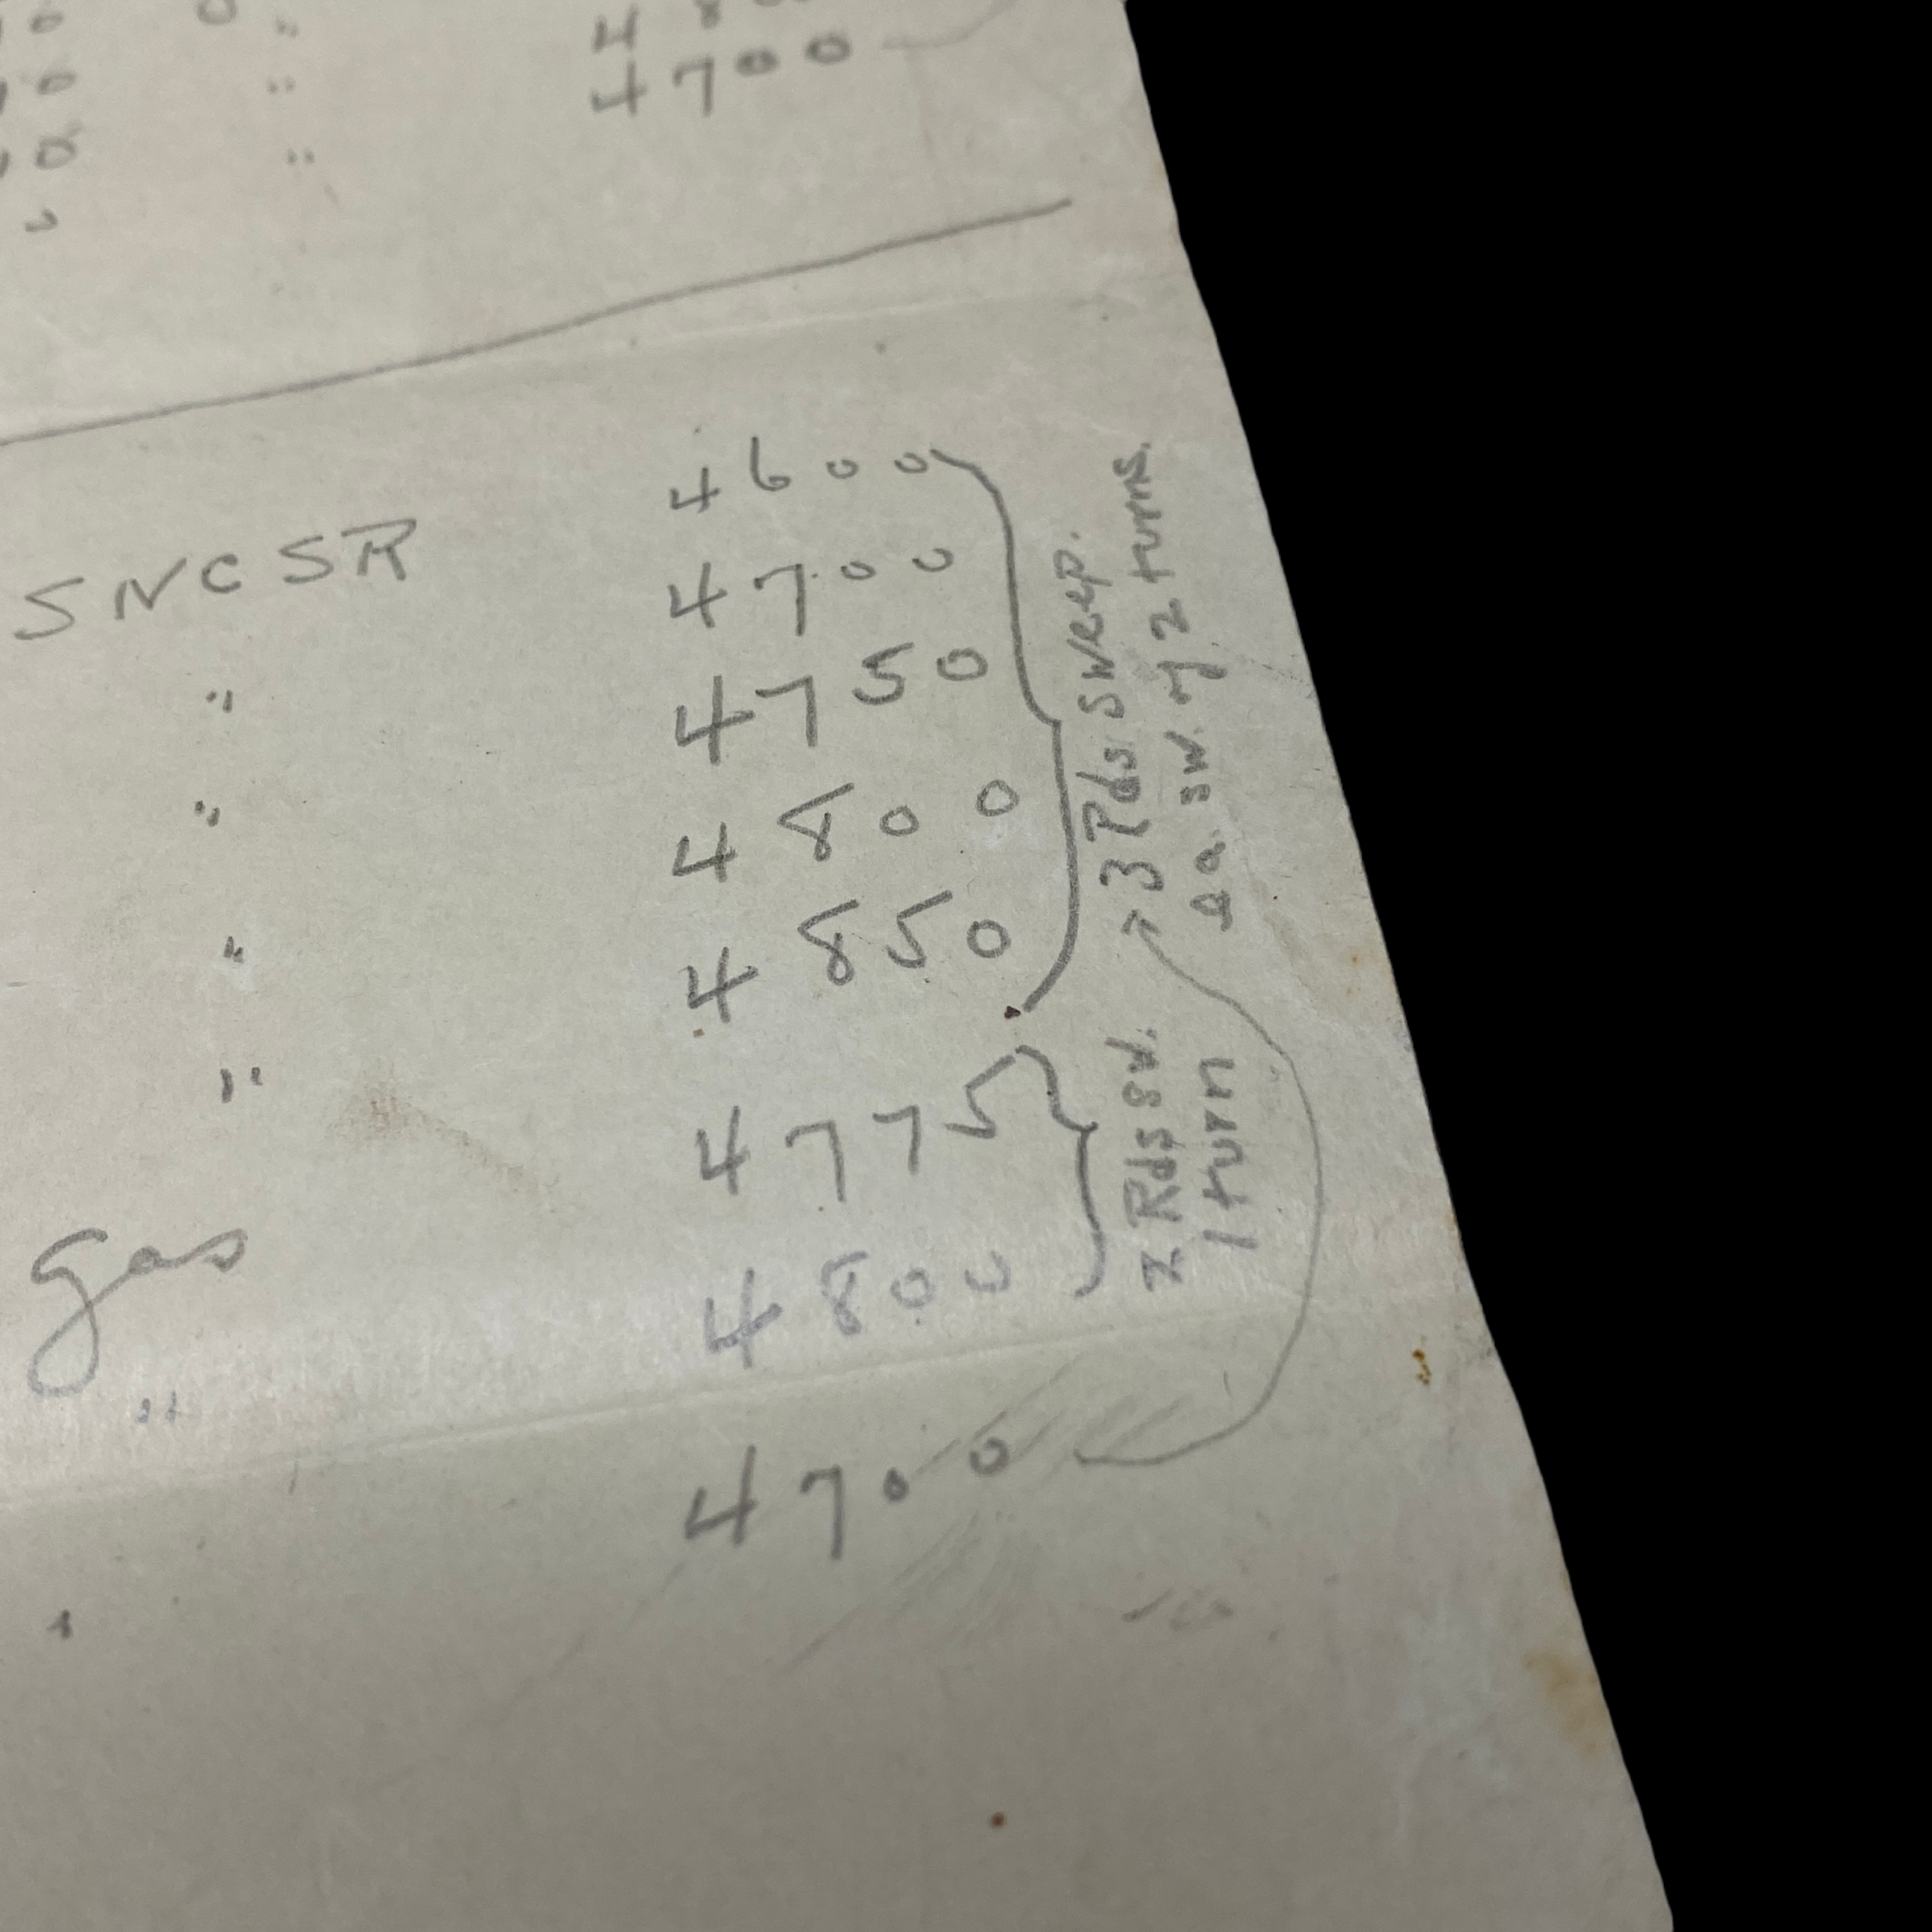 4700
SNCSR 4600
" 4700
" 4750
" 4800
" 4850
3 Rds sweep.
ea sw. of 2 turns.
gas 4775
" 4800
2 Rds sw.
1 turn
4700